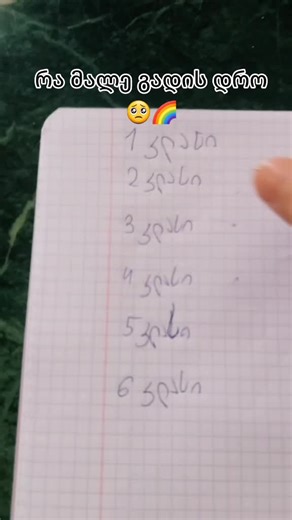 რა მალე გადის დრო
🥺🌈
1 კლასი
2 კლასი
3 კლასი
4 კლასი
5 კლასი
6 კლასი